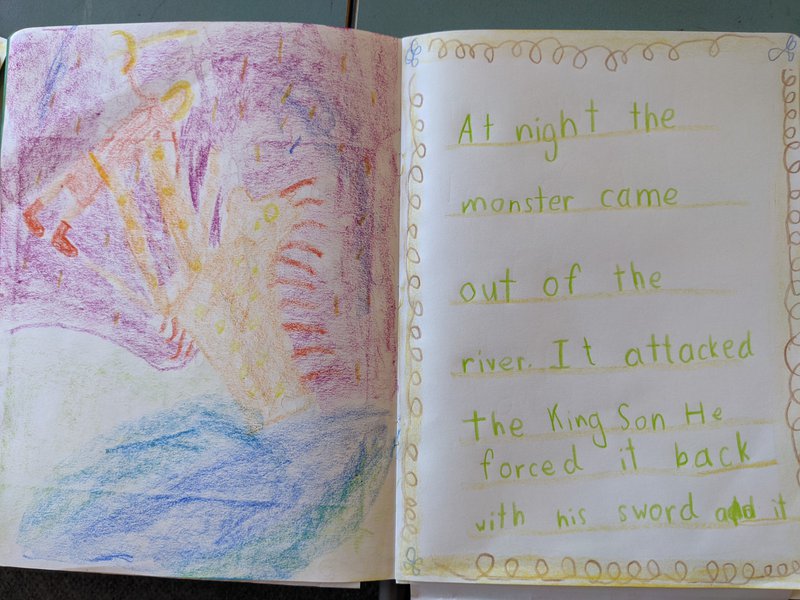 At night the
monster came
out of the
river. It attacked
the King Son He
forced it back
with his sword and it